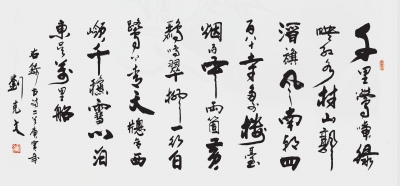 千里鶯啼綠
映紅水村山郭
酒旗風南朝四
百八十寺多少樓臺
烟雨中兩箇黃
鸝鳴翠柳一行白
鷺上青天窗含西
嶺千秋雪門泊
東吳萬里船
右錄古詩二首庚寅年
劉克文